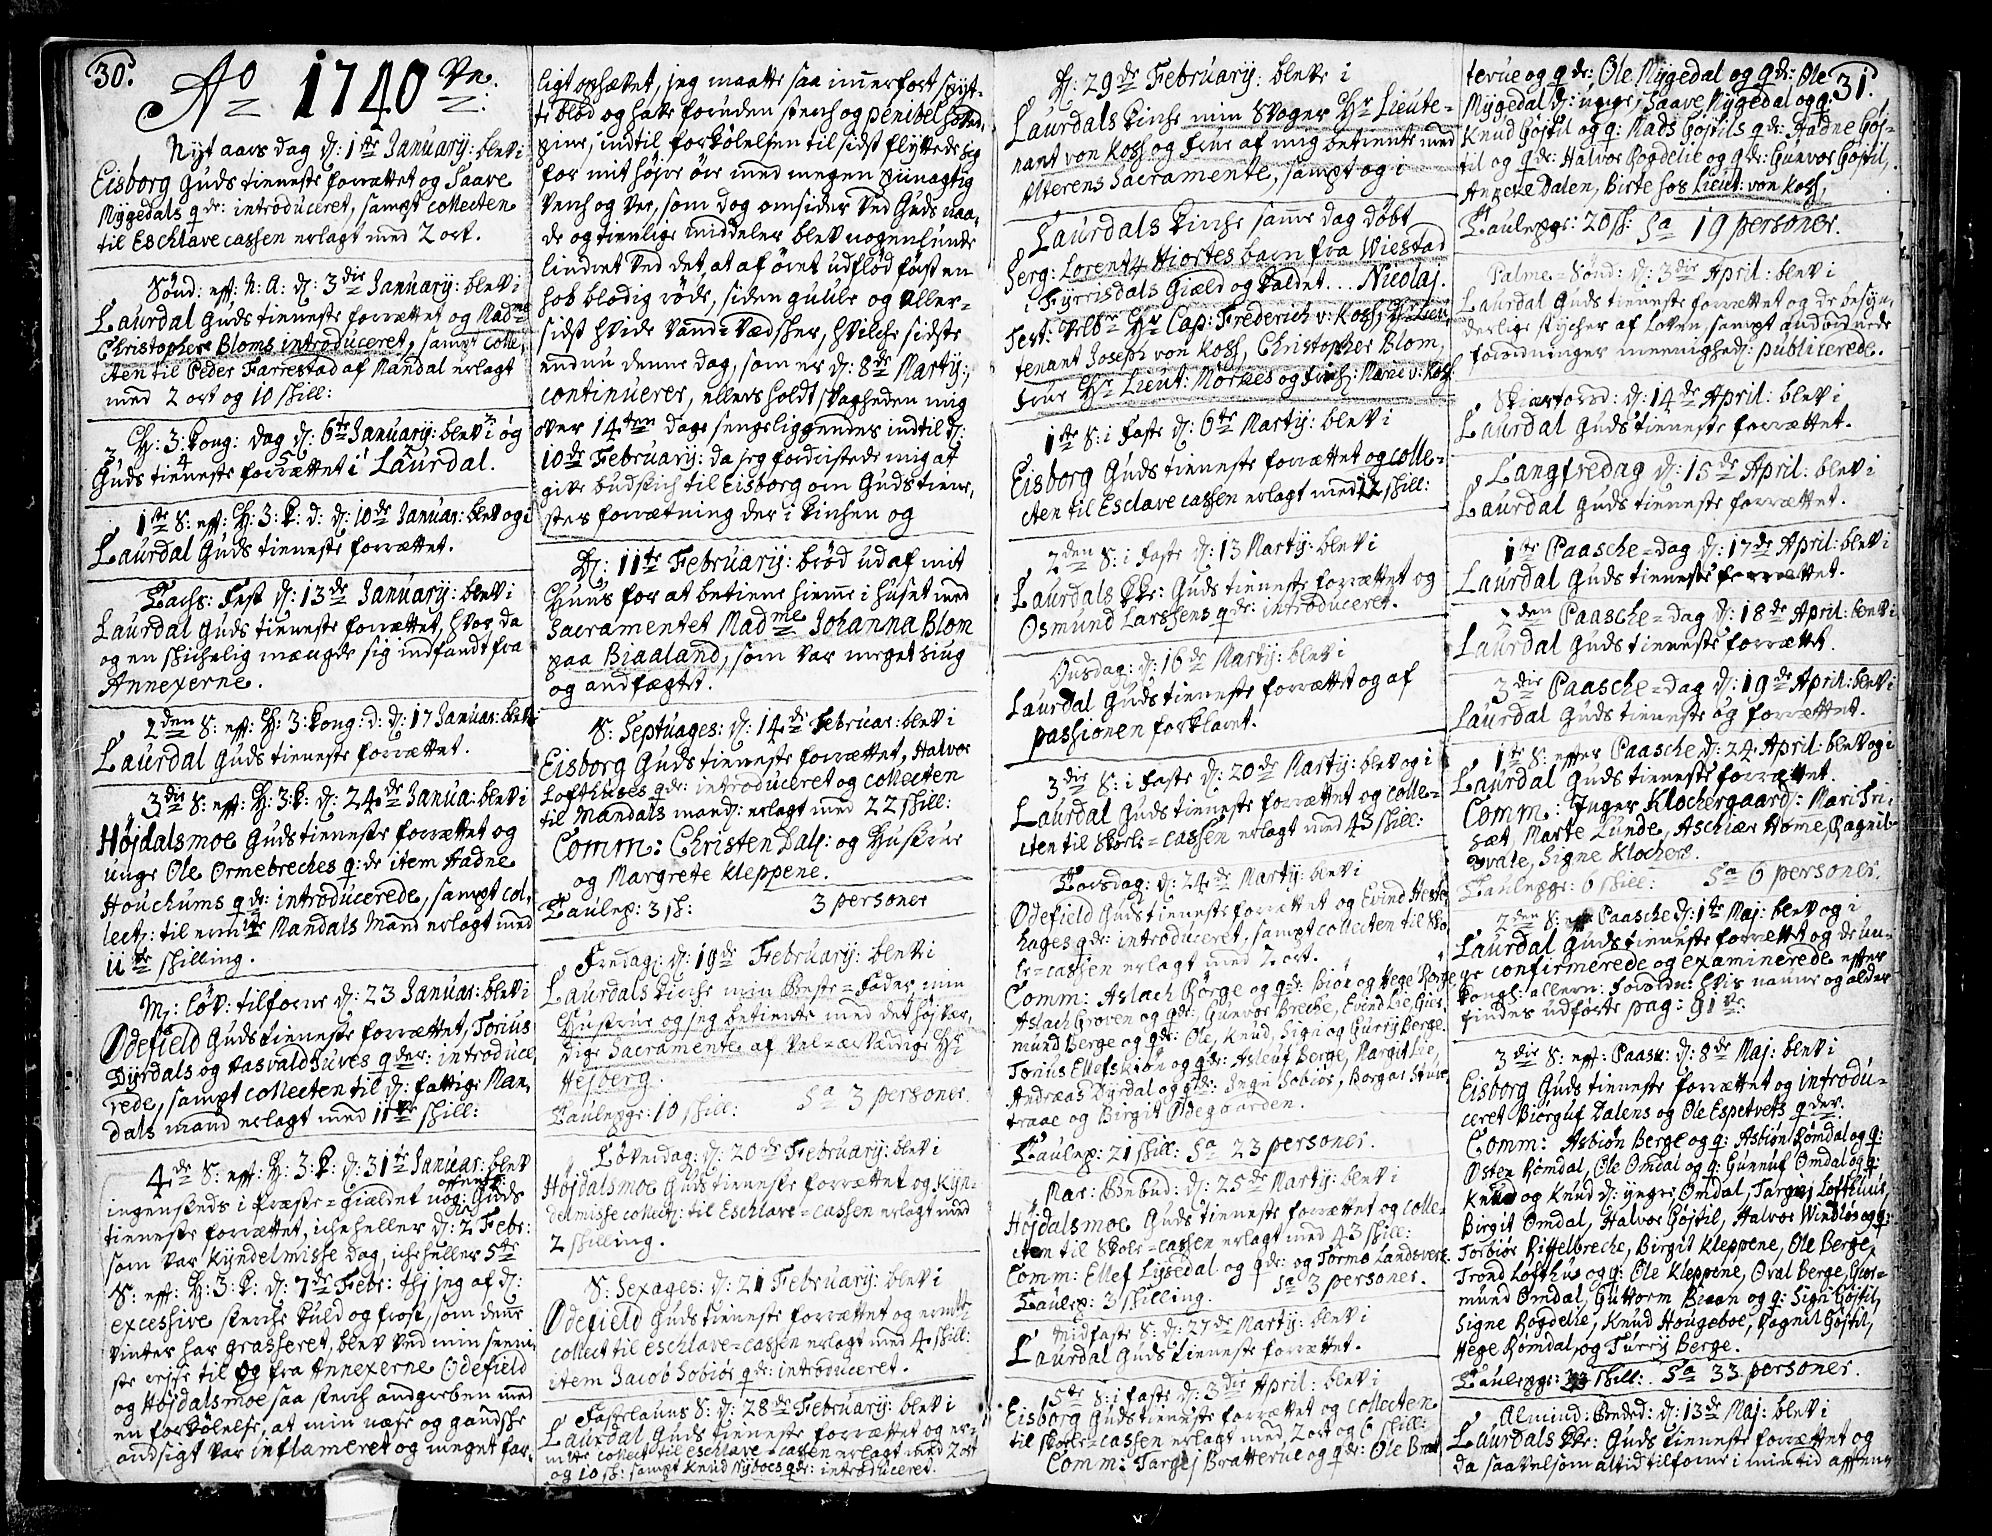 30.
Ao 1740 ve.
Nyt aars dag d: 1te January: blev i
Eisborg Guds tieneste forrættet og Saave
Mÿgedals qde: introduceret, sampt collecten
til Esclave cassen erlagt med 2 ort.
Sönd: eft: N: A: d: 3die January: blev i
Laurdal Guds tieneste forrættet og Madme
Christopher Bloms introduceret, sampt colle-
cten til Peder Farrestad af Mandal erlagt
med 2 ort og 10 skill:
H: 3: Kong: dag d: 6te January: blev i og
Guds tieneste forrættet i Laurdal.
1te S: eft: H: 3: K: d: d: 10de Januar: blev og i
Laurdal Guds tieneste forrættet.
Tachs: Fest d: 13de January: blev i
Laurdal Guds tieneste forrættet, hvor da
og en skichelig mængde sig indfandt fra
Annexerne.
2den S: eft: H: 3: Kong: d: d: 17 Januar: blev i
Laurdal Guds tieneste forrættet.
3die S: eft: H: 3: K: d: 24de Janua: blev i
Höjdalsmoe Guds tieneste forrættet og
unge Ole Ormebreches q:de item Aadne
Houchums qde: introducerede, sampt col-
lect: til Mandals Mand erlagt med
11te skilling.
M: löv: tilforne d: 23 Januar: blev i
Ödefield Guds tieneste forrættet, Torius
Dÿrdals og Aasvald huves qder: introduce-
rede, sampt collecten til d: fattige Man-
dals mand erlagt med 11ve skill:
4de S: eft: H: 3: K: d: 31te Januar: blev
ingensteds i Præste-Gieldet nog: offentl: Guds
tieneste forrættet, iche heller d: 2den Febr:
som var Kÿndelmisse dag, iche heller 5te
S: eft: H: 3: K: d: 7de Febr: thj jeg af d:
excessive sterche Kuld og frost, som denne
vinter har grasseret, blev ved min seeni-
ste rejse til og fra Annexerne Ödefield
og Höjdalsmoe saa sterch andgreben med
en forkölelse, at min næse og gandsche
andsigt var inflameret og meget far-
ligt ophævet, jeg maatte saa immerfort spÿt-
te blod og hafte foruden sterch og penibel hoved-
pine, indtil forkölelsen til sidst flyttede sig
for mit höjre öre med megen piinagtig
verch og vee, som dog omsider ved Guds naa-
de og tienlige middeler blev nogenlunde
lindret ved det, at af öret udflöd först en
hob blodig röde, siden guule og aller-
sidst hvide vand-vædscher, hvilche sidste
endnu denne dag, som er d: 8de Martÿ:,
continuerer, ellers holdt svagheden mig
over 14ten dage sengeliggendes indtil d:
10de February: da jeg fordristede mig at
give budskich til Eisborg om Guds tiene-
stes forrætning der i kirchen og
D: 11te February: bröd ud af mit
Huus for at betiene hiemme i huset med
Sacramentet Madme Johanna Blom
paa Biaaland, som var meget siug
og andfægtet.
S: Septuages: d: 14de Februar: blev i
Eisborg Guds tieneste forrættet, Halvor
Lofthuses qde: introduceret og collecten
til Mandals mand: erlagt med 22 skill:
Comm: Christen Dals: og Hustrue
og Margrete Kleppene.
Taulep: 3 sk: 3 personer
Fredag: d: 19de February: blev i
Laurdals Kirche min Beste-Fader, min
Hustrue og jeg betiente med det höjvær-
dige Sacramente af Vel-ærværdige Hr
Hejberg.
Taulepge: 10 skill: Sa 3 personer.
Löverdag: d: 20de February: blev i
Höjdalsmoe Guds tieneste forrættet og Kÿn-
delmisse collect: til Esclave-cassen erlagt med
2 skilling.
S: Sexages: d: 21 February: blev i
Ödefield Guds tieneste forrættet og ermte
collect til esclave-cassen erlagt med 4 skill:
item Jacob Sobiörs qde: introduceret.
Fastelauns S: d: 28de February: blev i
Laurdal Guds tieneste forrættet og er-
mte collect til esclave-cassen erlagt med 2 ort
og 10 sk: sampt Knud Nÿboes qde: introduceret.
D: 29de February: blev i
Laurdals Kirche min Svoger Hr Lieute-
nant von Koss og frue af mig betiente med
Alterens Sacramente, sampt og i
Laurdals Kirche samme dag döbt
Serg: Lorentz Hiortes barn fra Wiestad
i Fÿrrisdals Giæld og kaldet... Nicolaj.
Test: Velbr Hr Cap: Frederich v: Koss, Hr Lieu-
tenant Joseph von Koss, Christopher Blom,
frue Hr Lieut: Mörkes og frch: Marie v: Koss
1te S: i faste d: 6te Martÿ: blev i
Eisborg Guds tieneste forrættet og colle-
cten til Esclave cassen erlagt med 22 skill:
2den S: i faste d: 13 Martÿ: blev i
Laurdals Kke: Guds tieneste forrættet og
Osmund Larssens qde: introduceret.
Onsdag: d: 16de Martÿ: blev i
Laurdal Guds tieneste forrættet og af
passionen forklaret.
3die S: i faste d: 20de Martÿ: blev og i
Laurdal Guds tieneste forrættet og colle-
cten til Skole-cassen erlagt med 43 skill:
Torsdag: d: 24de Martÿ: blev i
Ödefield Guds tieneste forrættet og Evind Heste-
hages qde: introduceret, sampt collecten til Sko-
le-cassen erlagt med 2 ort.
Comm: Aslach Börge og qde: Biör og Hege Börge
Aslach Groven og qde: Gunvor Breche, Evind Lie, Gur-
mund Berge og qde: Ole, Knud, Sigri og Gurrÿ Berge.
Torius Ellefskiön og qde: Asleuf Berge, Margit Lie,
Andreas Dÿrdal og qde: Ingri Sobiör, Borgar Stuve-
traae og Birgit Ödegaarden.
Taulep: 21 skill: Sa 23 personer.
Mar: Bebud: d: 25de Martÿ: blev i
Höjdalsmoe Guds tieneste forrættet og colle-
cten til Skole-cassen erlagt med 43 skill:
Comm: Ellef Lijsedal og qde: og Tormo Landsverk
Taulep: 3 skilling. Sa 3 personer.
Midfaste S: d: 27de Martÿ: blev i
Laurdal Guds tieneste forrættet.
5te S: i faste d: 3die April: blev i
Eisborg Guds tieneste forrættet og collecten
til Skole-cassen erlagt med 2 ort og 6 skill:
Comm: Targej Bratterue og qde: Ole Brat-
31.
terue og qde: Ole Mÿgedal og qde: Ole
Mÿgedal d: unge, Saave Mÿgedal og q:
Knud Göjstil og q: Mads Göjstils qde: Aadne Göj-
stil og qde: Halvor Rogdelie og qde: Gunvor Göjstil,
Anne Dalen, Birte hos Lieut: von Koss,
Taulepge: 20 sk: Sa 19 personer.
Palme-Sönd: d: 3die April: blev i
Laurdal Guds tieneste forrættet og de besyn-
derlige stÿcher af loven, sampt andordnede
forordninger meenighed: publicerede.
Skiærtorsd: d: 14de April: blev i
Laurdal Guds tieneste forrættet.
Langfredag d: 15de April: blev i
Laurdal Guds tieneste forrættet.
1te Paasche-dag d: 17de April: blev i
Laurdal Guds tieneste forrættet.
2den Paasche-dag d: 18de April: blev i
Laurdal Guds tieneste forrættet.
3die Paasche-dag d: 19de April: blev i
Laurdal Guds tieneste og forrættet.
1te S: efter Paasche d: 24 April: blev og i
Laurdal Guds tieneste forrættet.
Comm: Inger Klochergaard: Mari Fri-
sæt, Marte Lunde, Aschier Home, Ragnib
Svale, Signe Klochers.
Taulepge: 6 skill: Sa 6 personer.
2den S: eft Paasche d: 1te Maj: blev og i
Laurdal Guds tieneste forrættet og de un-
ge confirmerede og examinerede efter
Kongl: allern: forordn: hvis navne og alder
findes udförte pag: 91ve.
3die S: eft: Paask: d: 8de Maj: blev i
Eisborg Guds tieneste forrættet og introdu-
ceret Biörguf Dalens og Ole Espetvets qder.
Comm: Asbiön Berge og q: Asbiön Römdal og q:
Östen Römdal, Ole Omdal og q: Gunnuf Omdal og q:
Knud og Knud d: yngre Omdal, Targej Lofthuus,
Birgit Omdal, Halvor Göjstil, Halvor Windlös og q:
Torbiör Riffelbreche, Birgit Kleppene, Ole Berge,
Trond Lofthus og q: Ole Kleppene, Oval Berge, Gur-
mund Omdal, Guttorm Biaan og q: Sigri Göjstil,
Signe Rogdelie, Knud Hougeboe, Ragnil Göjstil,
Hege Römdal, og Turrÿ Berge.
Taulepge: 33 skill: Sa 33 personer.
Almind: Beded: d: 13de Maj: blev i
Laurdals Kke: Guds tieneste forrættet og
da saavelsom altid tilforne i min tid aften-